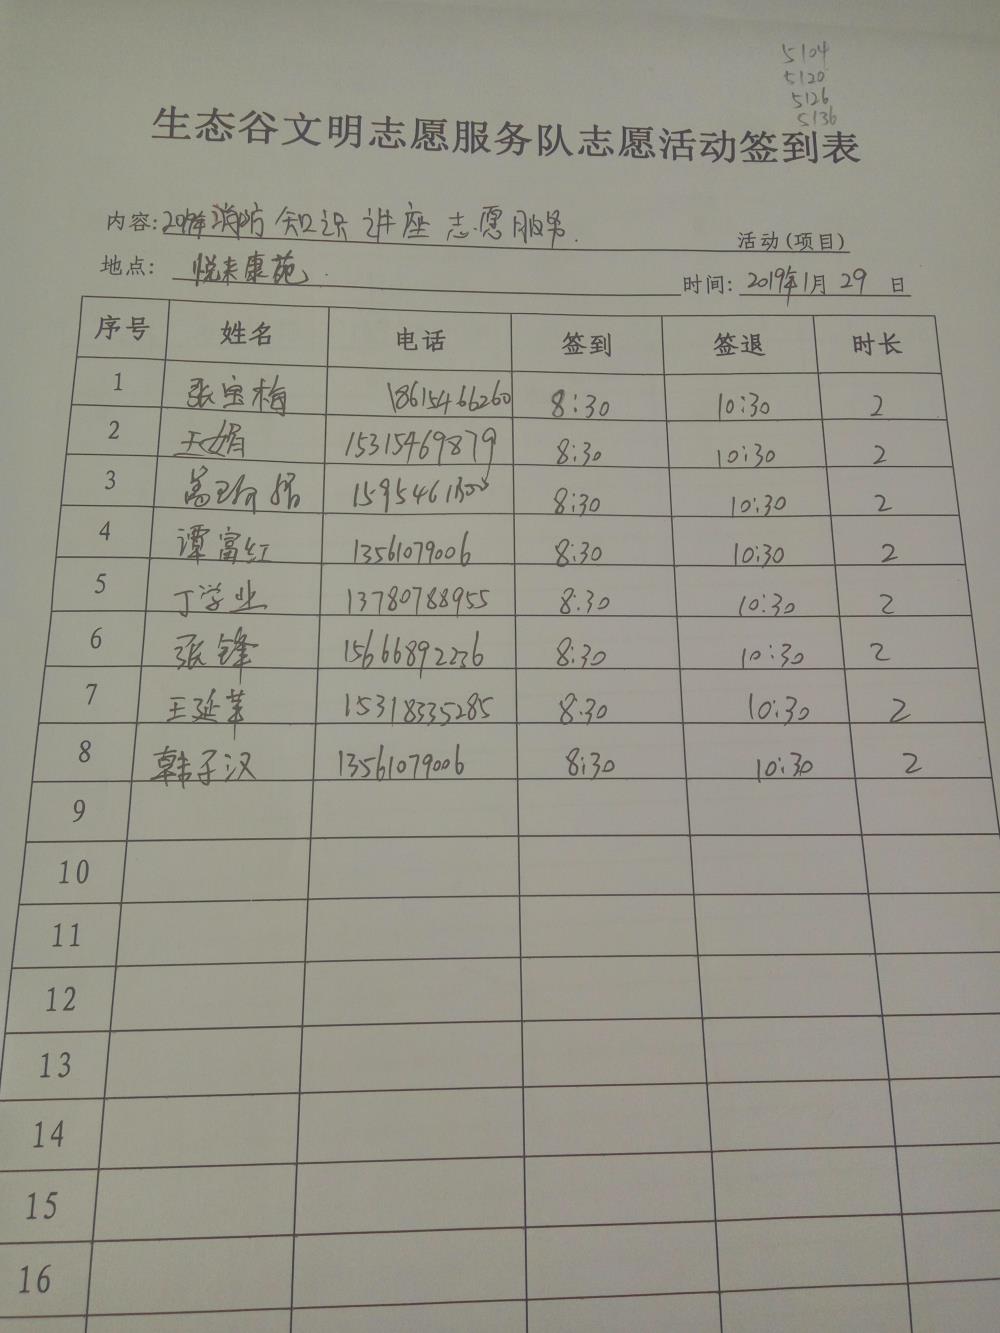 5104
5120
5126
5136
生态谷文明志愿服务队志愿活动签到表
内容: 2019年消防知识讲座志愿服务. 活动(项目)
地点: 悦来康苑 时间: 2019年1月29日
序号 姓名 电话 签到 签退 时长
1 张宝梅 18615466260 8:30 10:30 2
2 王娟 15315469879 8:30 10:30 2
3 8:30 10:30 2
4 谭富红 13561079006 8:30 10:30 2
5 丁学业 13780788955 8:30 10:30 2
6 张锋 15666892236 8:30 10:30 2
7 王延苹 15318335285 8:30 10:30 2
8 韩子汉 13561079006 8:30 10:30 2
9
10
11
12
13
14
15
16